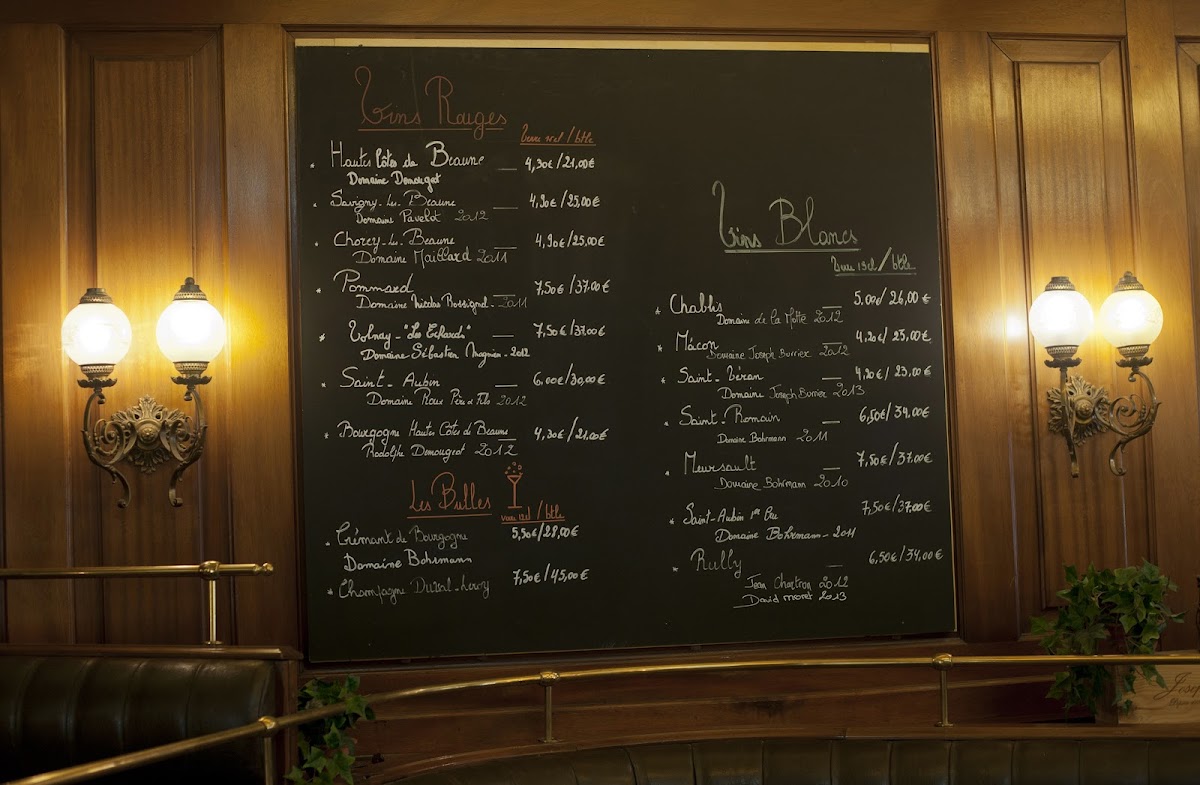 Vins Rouges
Verre 12cl / btle
* Hautes Côtes de Beaune — 4,30€/21,00€
Domaine Demougeot
* Savigny-Les-Beaune — 4,90€/25,00€
Domaine Pavelot 2012
* Chorey-Les-Beaune — 4,90€/25,00€
Domaine Maillard 2011
* Pommard — 7,50€/37,00€
Domaine Nicolas Rossignol - 2011
* Volnay - "Les Echards" — 7,50€/37,00€
Domaine Sébastien Magnien - 2012
* Saint-Aubin — 6,00€/30,00€
Domaine Roux Père & Fils 2012
* Bourgogne Hautes Côtes de Beaune — 4,30€/21,00€
Rodolphe Demougeot 2012
Les Bulles
verre 12cl / btle
* Crémant de Bourgogne 5,50€/28,00€
Domaine Bohrmann
* Champagne Duval-Leroy 7,50€/45,00€
Vins Blancs
Verre 12cl / btle
* Chablis — 5,00€/26,00€
Domaine de la Motte 2012
* Mâcon — 4,20€/23,00€
Domaine Joseph Burrier 2012
* Saint-Véran — 4,20€/23,00€
Domaine Joseph Burrier 2013
* Saint-Romain — 6,50€/34,00€
Domaine Bohrmann 2011
* Meursault — 7,50€/37,00€
Domaine Bohrmann 2010
* Saint-Aubin 1er Cru 7,50€/37,00€
Domaine Bohrmann - 2011
* Rully — 6,50€/34,00€
Jean Chartron 2012
David moret 2013